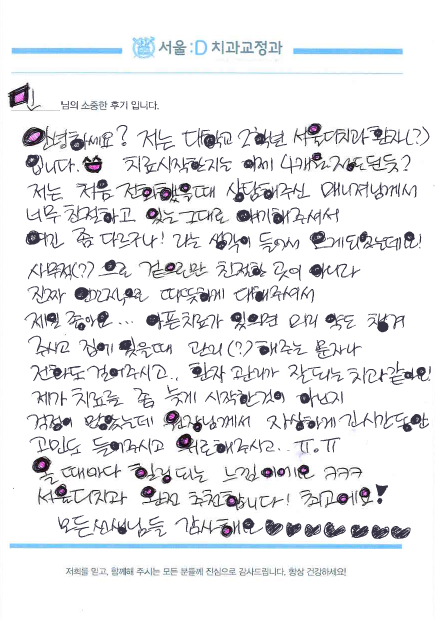 서울:D 치과교정과
님의 소중한 후기 입니다.
안녕하세요? 저는 대학교 2학년 서울디치과 환자(?)
입니다. 치료시작한지는 이제 4개월정도된듯?
저는 처음 전화했을때 상담해주신 매니저님께서
너무 친절하고 있는그대로 얘기해주셔서
여긴 좀 다르구나! 라는 생각이 들어서 오게되었는데요!
사무적(?)으로 겉으로만 친절한 곳이 아니라
진짜 따뜻하게 대해주셔서
제일 좋아요... 아픈치료가 있으면 미리 약도 챙겨
주시고 집에 있을때 관리(?)해주는 문자나
전화도 걸어주시고.. 환자 관리가 잘되는 치과같아요!
제가 치료를 좀 늦게 시작한것이 아닌지
걱정이 많았는데 원장님께서 자상하게 긴시간동안
고민도 들어주시고 위로해주시고.. ㅠ.ㅠ
올 때마다 힐링되는 느낌이에요 ㅋㅋㅋ
서울디치과 완전 추천합니다! 최고에요!
모든선생님들 감사해요
저희를 믿고, 함께해 주시는 모든 분들께 진심으로 감사드립니다. 항상 건강하세요!